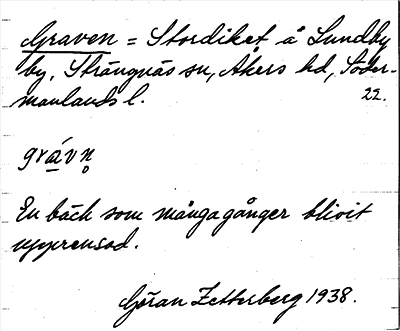 Graven = Stordiket å Lundby
by, Strängnäs sn, Åkers hd, Söder-
manlands l. 22.
grávn̥
En bäck som mångagånger blivit
upprensad.
Göran Zetterberg 1938.